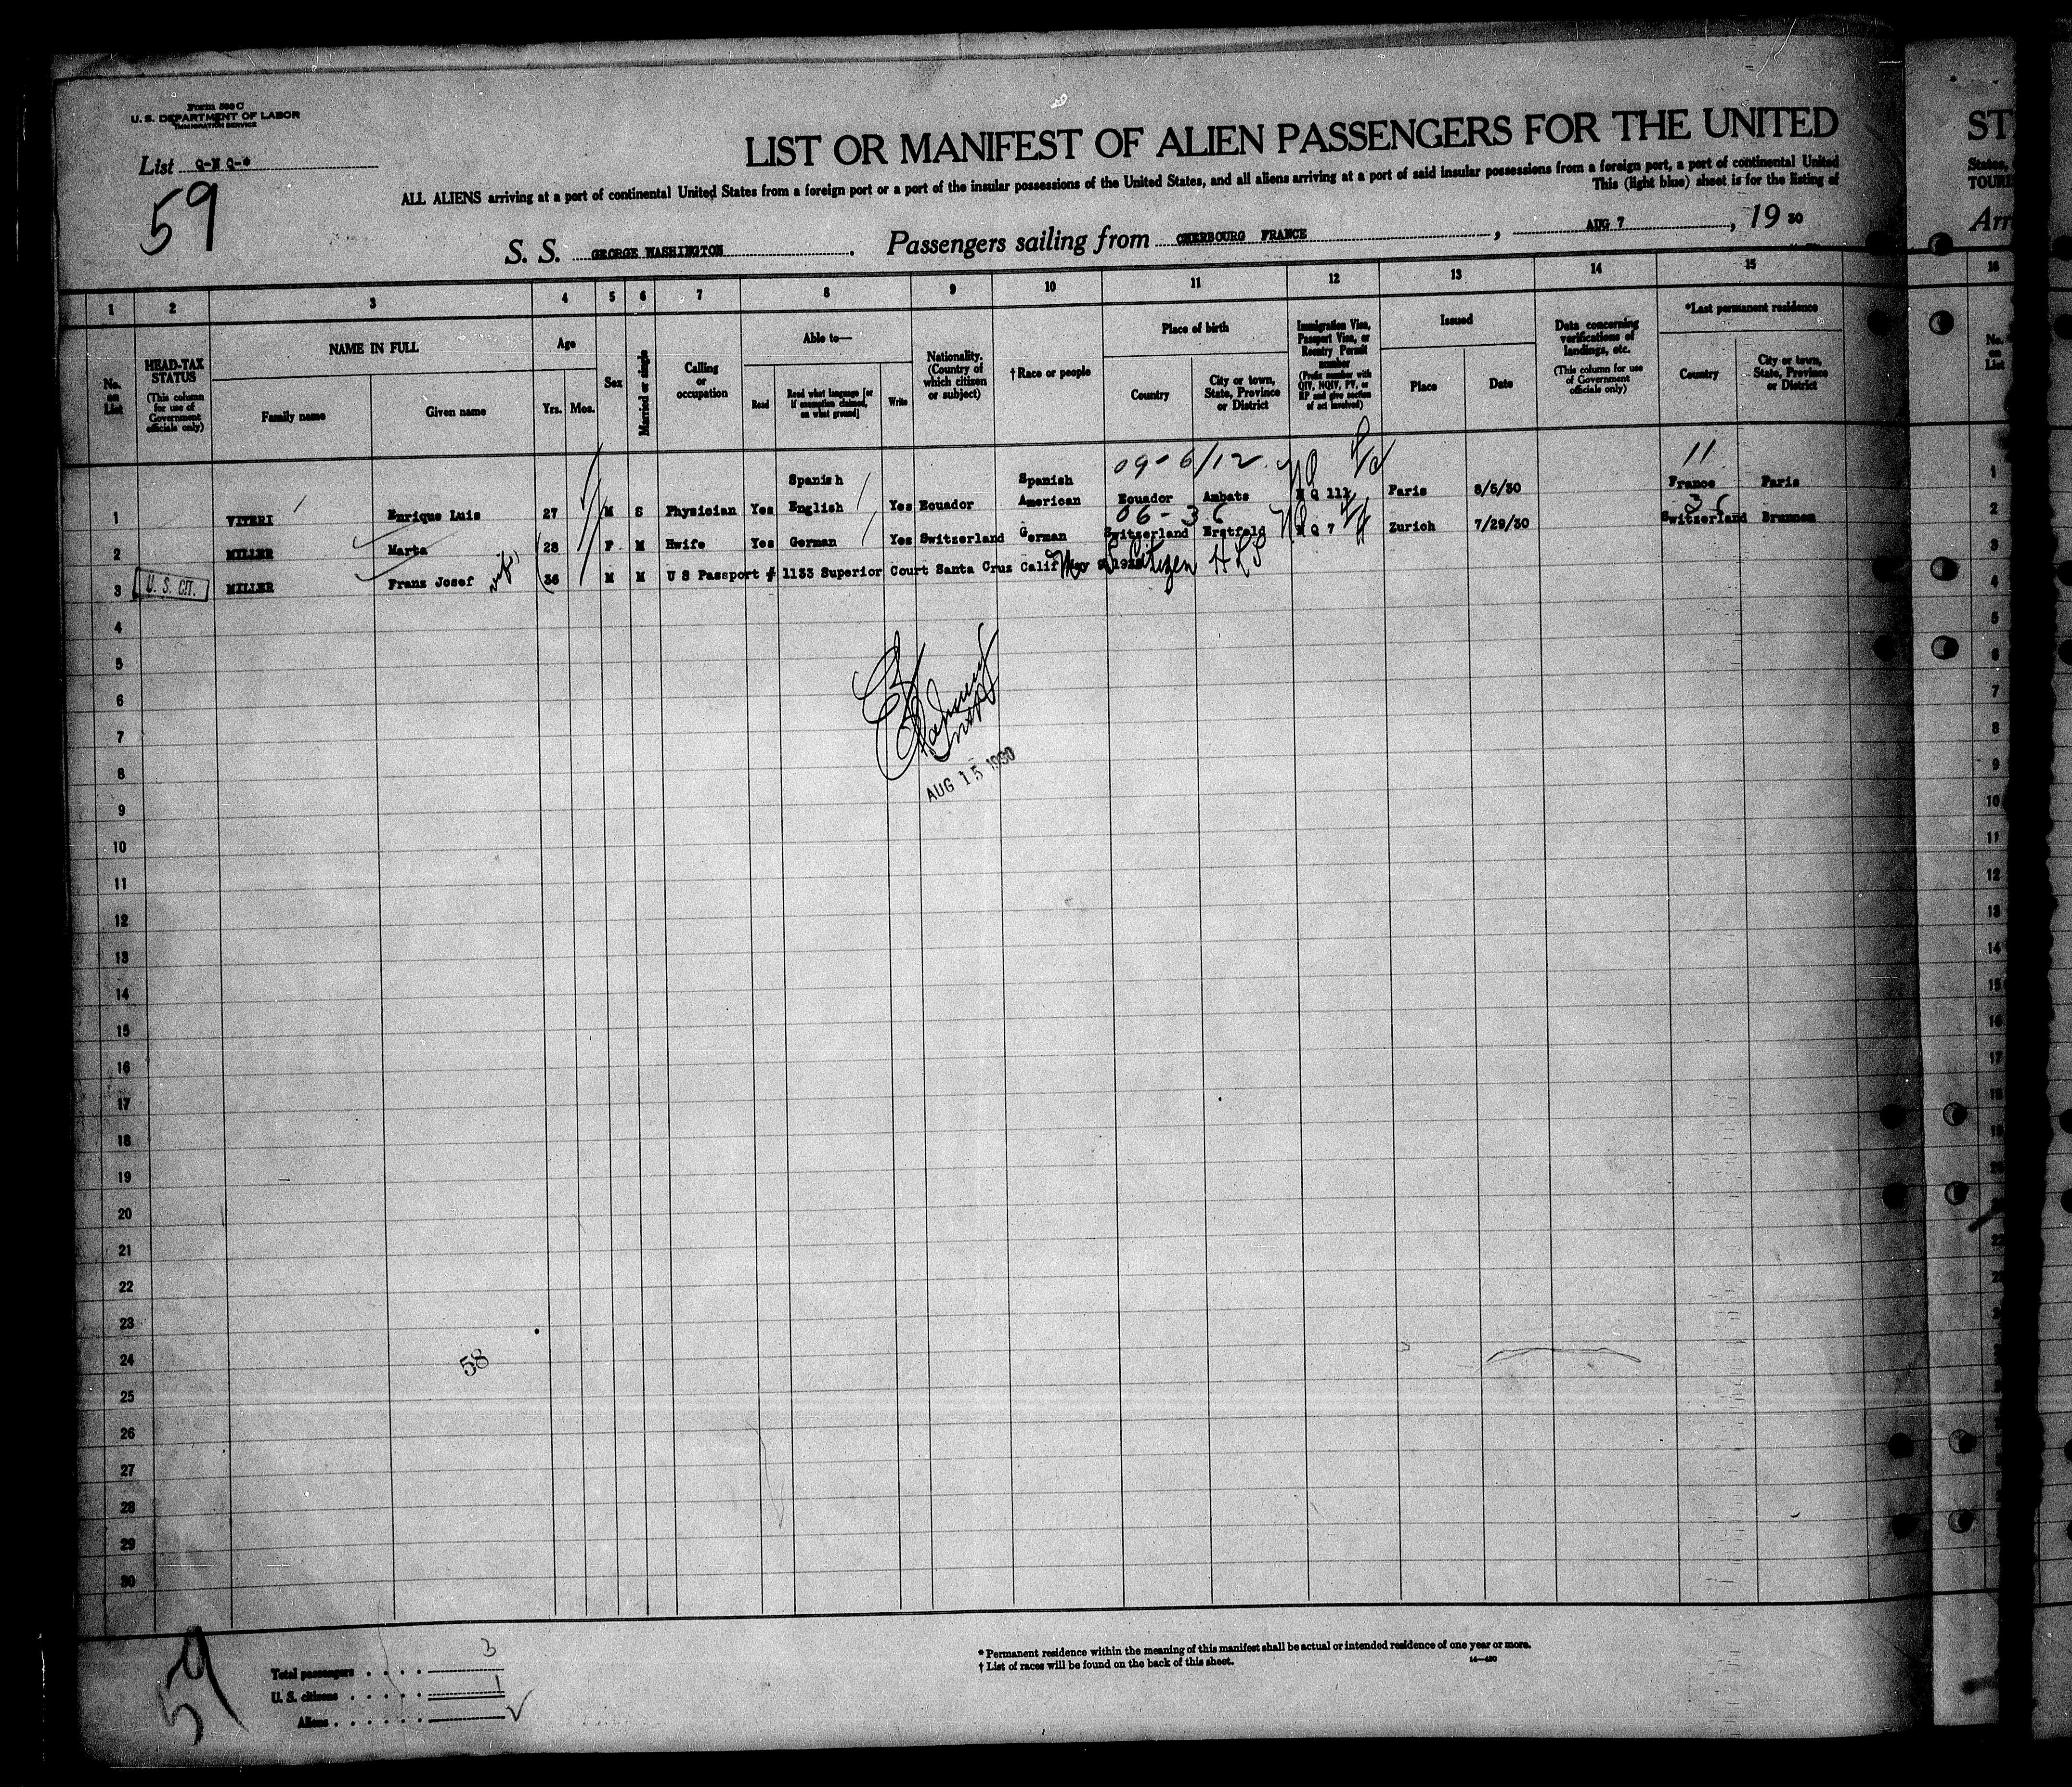 Form 500 C
U. S. DEPARTMENT OF LABOR
IMMIGRATION SERVICE
List Q-N Q-*
59
LIST OR MANIFEST OF ALIEN PASSENGERS FOR THE UNITED
ALL ALIENS arriving at a port of continental United States from a foreign port or a port of the insular possessions of the United States, and all aliens arriving at a port of said insular possessions from a foreign port, a port of continental United
This (light blue) sheet is for the listing of
S. S. GEORGE WASHINGTON. Passengers sailing from CHERBOURG FRANCE, AUG 7, 19 30
1 2 3 4 5 6 7 8 9 10 11 12 13 14 15
No. on List
HEAD-TAX STATUS (This column for use of Government officials only)
NAME IN FULL
Family name
Given name
Age
Yrs. Mos.
Sex
Married or single
Calling or occupation
Able to—
Read
Read what language [or if exemption claimed, on what ground]
Write
Nationality. (Country of which citizen or subject)
† Race or people
Place of birth
Country
City or town, State, Province or District
Immigration Visa, Passport Visa, or Reentry Permit number (Prefix number with QIV, NQIV, PV, or RP and give section of act involved)
Issued
Place
Date
Data concerning verifications of landings, etc. (This column for use of Government officials only)
*Last permanent residence
Country
City or town, State, Province or District
09-6/12 11
1 VITERI Enrique Luis 27 M S Physician Yes Spanish English Yes Ecuador Spanish American Ecuador Ambato N Q 111 Paris 8/5/30 France Paris
06-36 36
2 MILLER Marta 28 F M Hwife Yes German Yes Switzerland German Switzerland Erstfeld N Q 7 Zurich 7/29/30 Switzerland Brunnen
3 U. S. CIT. MILLER Franz Josef 36 M M U S Passport # 1133 Superior Court Santa Cruz Calif May Citizen
4
5
6
7
8
AUG 15 1930
9
10
11
12
13
14
15
16
17
18
19
20
21
22
23
24
58
25
26
27
28
29
30
59
Total passengers . . . . 3
U. S. citizens . . . . . 1
Aliens . . . . . .
* Permanent residence within the meaning of this manifest shall be actual or intended residence of one year or more.
† List of races will be found on the back of this sheet.
14—430